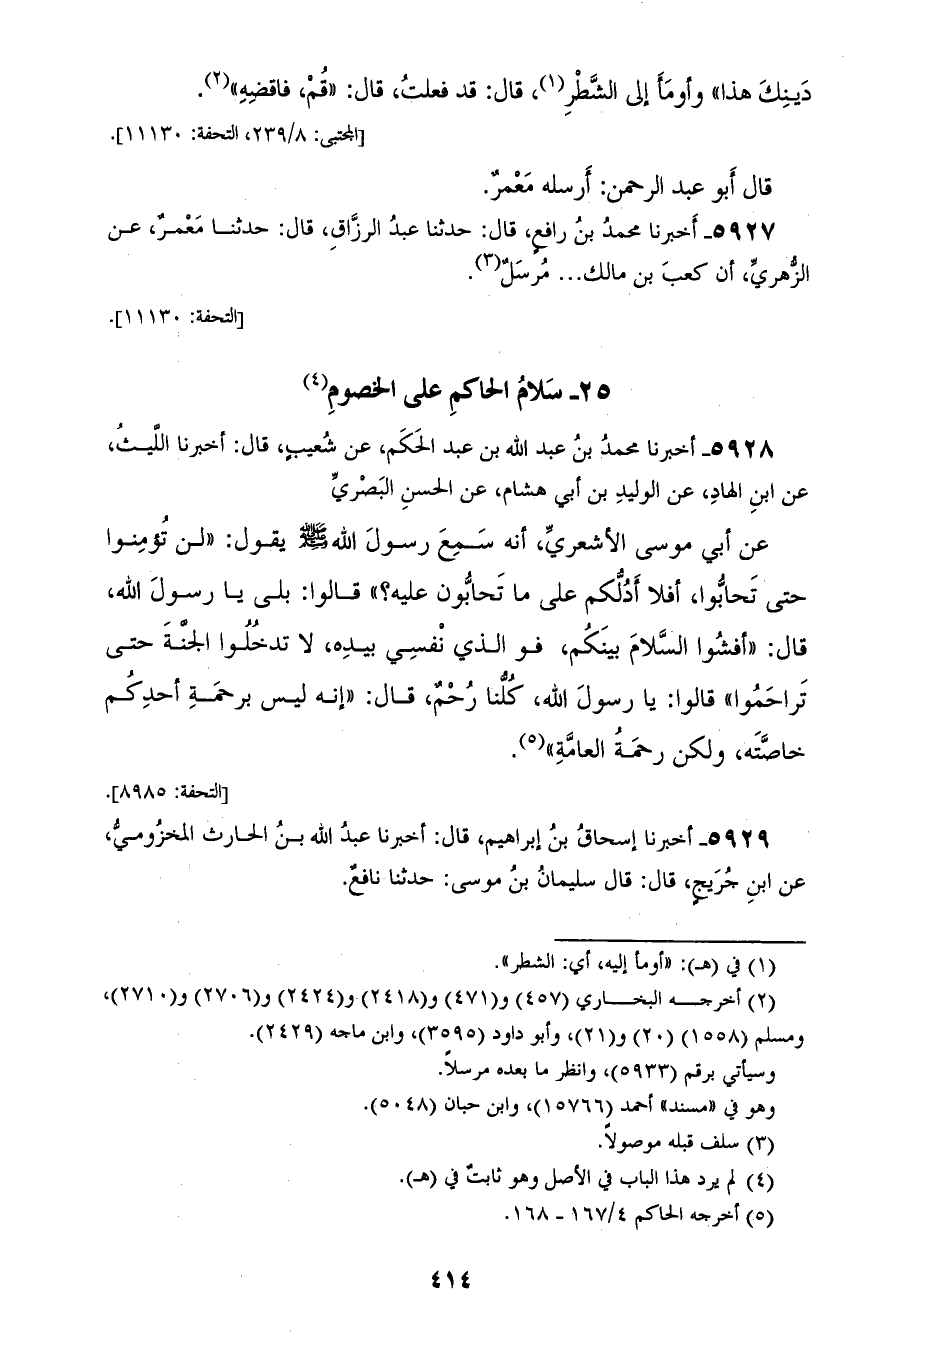 دَينِكَ هذا» وأومَأَ إلى الشَّطْرِ(١)، قال: قد فعلتُ، قال: «قُمْ، فاقضِهِ»(٢).
[المجتبى: ٢٣٩/٨، التحفة: ١١١٣٠].
قال أَبو عبد الرحمن: أَرسله مَعْمرٌ.
٥٩٢٧ـ أَخبرنا محمدُ بنُ رافعٍ، قال: حدثنا عبدُ الرزَّاقِ، قال: حدثنا مَعْمرٌ، عن
الزُّهريِّ، أن كعبَ بن مالك... مُرسَلٌ(٣).
[التحفة: ١١١٣٠].
٢٥ـ سَلامُ الحاكمِ على الخصومِ(٤)
٥٩٢٨ـ أخبرنا محمدُ بنُ عبد الله بن عبد الحَكَم، عن شُعيبٍ، قال: أخبرنا اللَّيثُ،
عن ابنِ الهادِ، عن الوليدِ بن أبي هشام، عن الحسنِ البَصْريِّ
عن أبي موسى الأشعريِّ، أنه سَمِعَ رسولَ اللهﷺ يقول: «لن تُؤمِنوا
حتى تَحابُّوا، أفلا أَدُلُّكم على ما تَحابُّون عليه؟» قالوا: بلى يا رسولَ الله،
قال: «أفشُوا السَّلامَ بينَكُم، فو الذي نَفْسِي بيدِه، لا تدخُلُوا الجنَّةَ حتى
تَراحَمُوا» قالوا: يا رسولَ الله، كُلُّنا رُحْمٌ، قال: «إنه ليس برحمَةِ أحدِكُم
خاصَّتَه، ولكن رحمَةُ العامَّةِ»(٥).
[التحفة: ٨٩٨٥].
٥٩٢٩ـ أخبرنا إسحاقُ بنُ إبراهيم، قال: أخبرنا عبدُ الله بنُ الحارث المخزُوميُّ،
عن ابنِ جُرَيجٍ، قال: قال سليمانُ بنُ موسى: حدثنا نافعٌ.
(١) في (هـ): «أومأ إليه، أي: الشطر».
(٢) أخرجه البخاري (٤٥٧) و(٤٧١) و(٢٤١٨) و(٢٤٢٤) و(٢٧٠٦) و(٢٧١٠)،
ومسلم (١٥٥٨) (٢٠) و(٢١)، وأبو داود (٣٥٩٥)، وابن ماجه (٢٤٢٩).
وسيأتي برقم (٥٩٣٣)، وانظر ما بعده مرسلاً.
وهو في «مسند» أحمد (١٥٧٦٦)، وابن حبان (٥٠٤٨).
(٣) سلف قبله موصولاً.
(٤) لم يرد هذا الباب في الأصل وهو ثابتٌ في (هـ).
(٥) أخرجه الحاكم ١٦٧/٤ - ١٦٨.
٤١٤